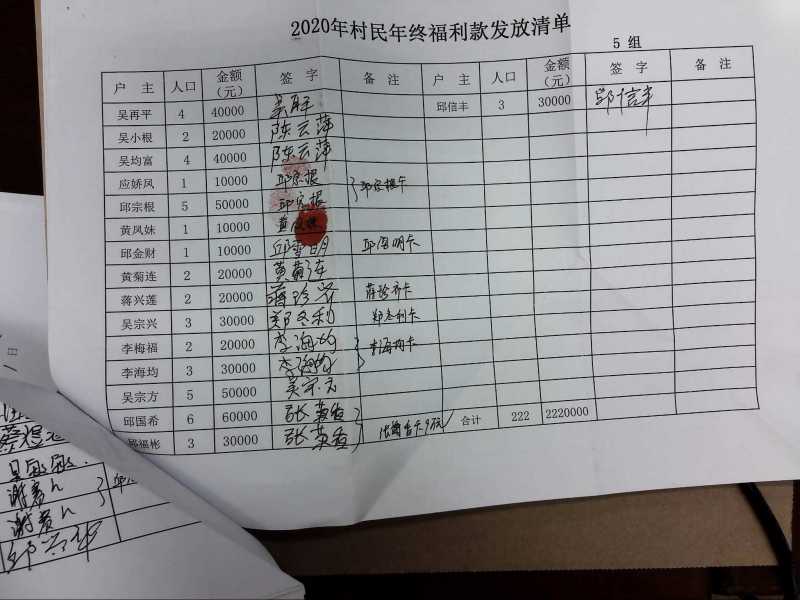 2020年村民年终福利款发放清单
5 组
户 主 人口 金额（元） 签 字 备 注 户 主 人口 金额（元） 签 字 备 注
吴再平 4 40000 邱信丰 3 30000 邱信丰
吴小根 2 20000 陈云萍
吴均富 4 40000 陈云萍
应娇凤 1 10000 邱宗根 邱宗根卡
邱宗根 5 50000 邱宗根
黄凤妹 1 10000
邱金财 1 10000 邱雪明 邱雪明卡
黄菊连 2 20000 黄菊连
蒋兴莲 2 20000 蒋珍齐 蒋珍齐卡
吴宗兴 3 30000 郑冬利 郑冬利卡
李梅福 2 20000 李海均 李海均卡
李海均 3 30000 李海均
吴宗方 5 50000 吴宗方
邱国希 6 60000 张英 合计 222 2220000
邱福彬 3 30000 张英